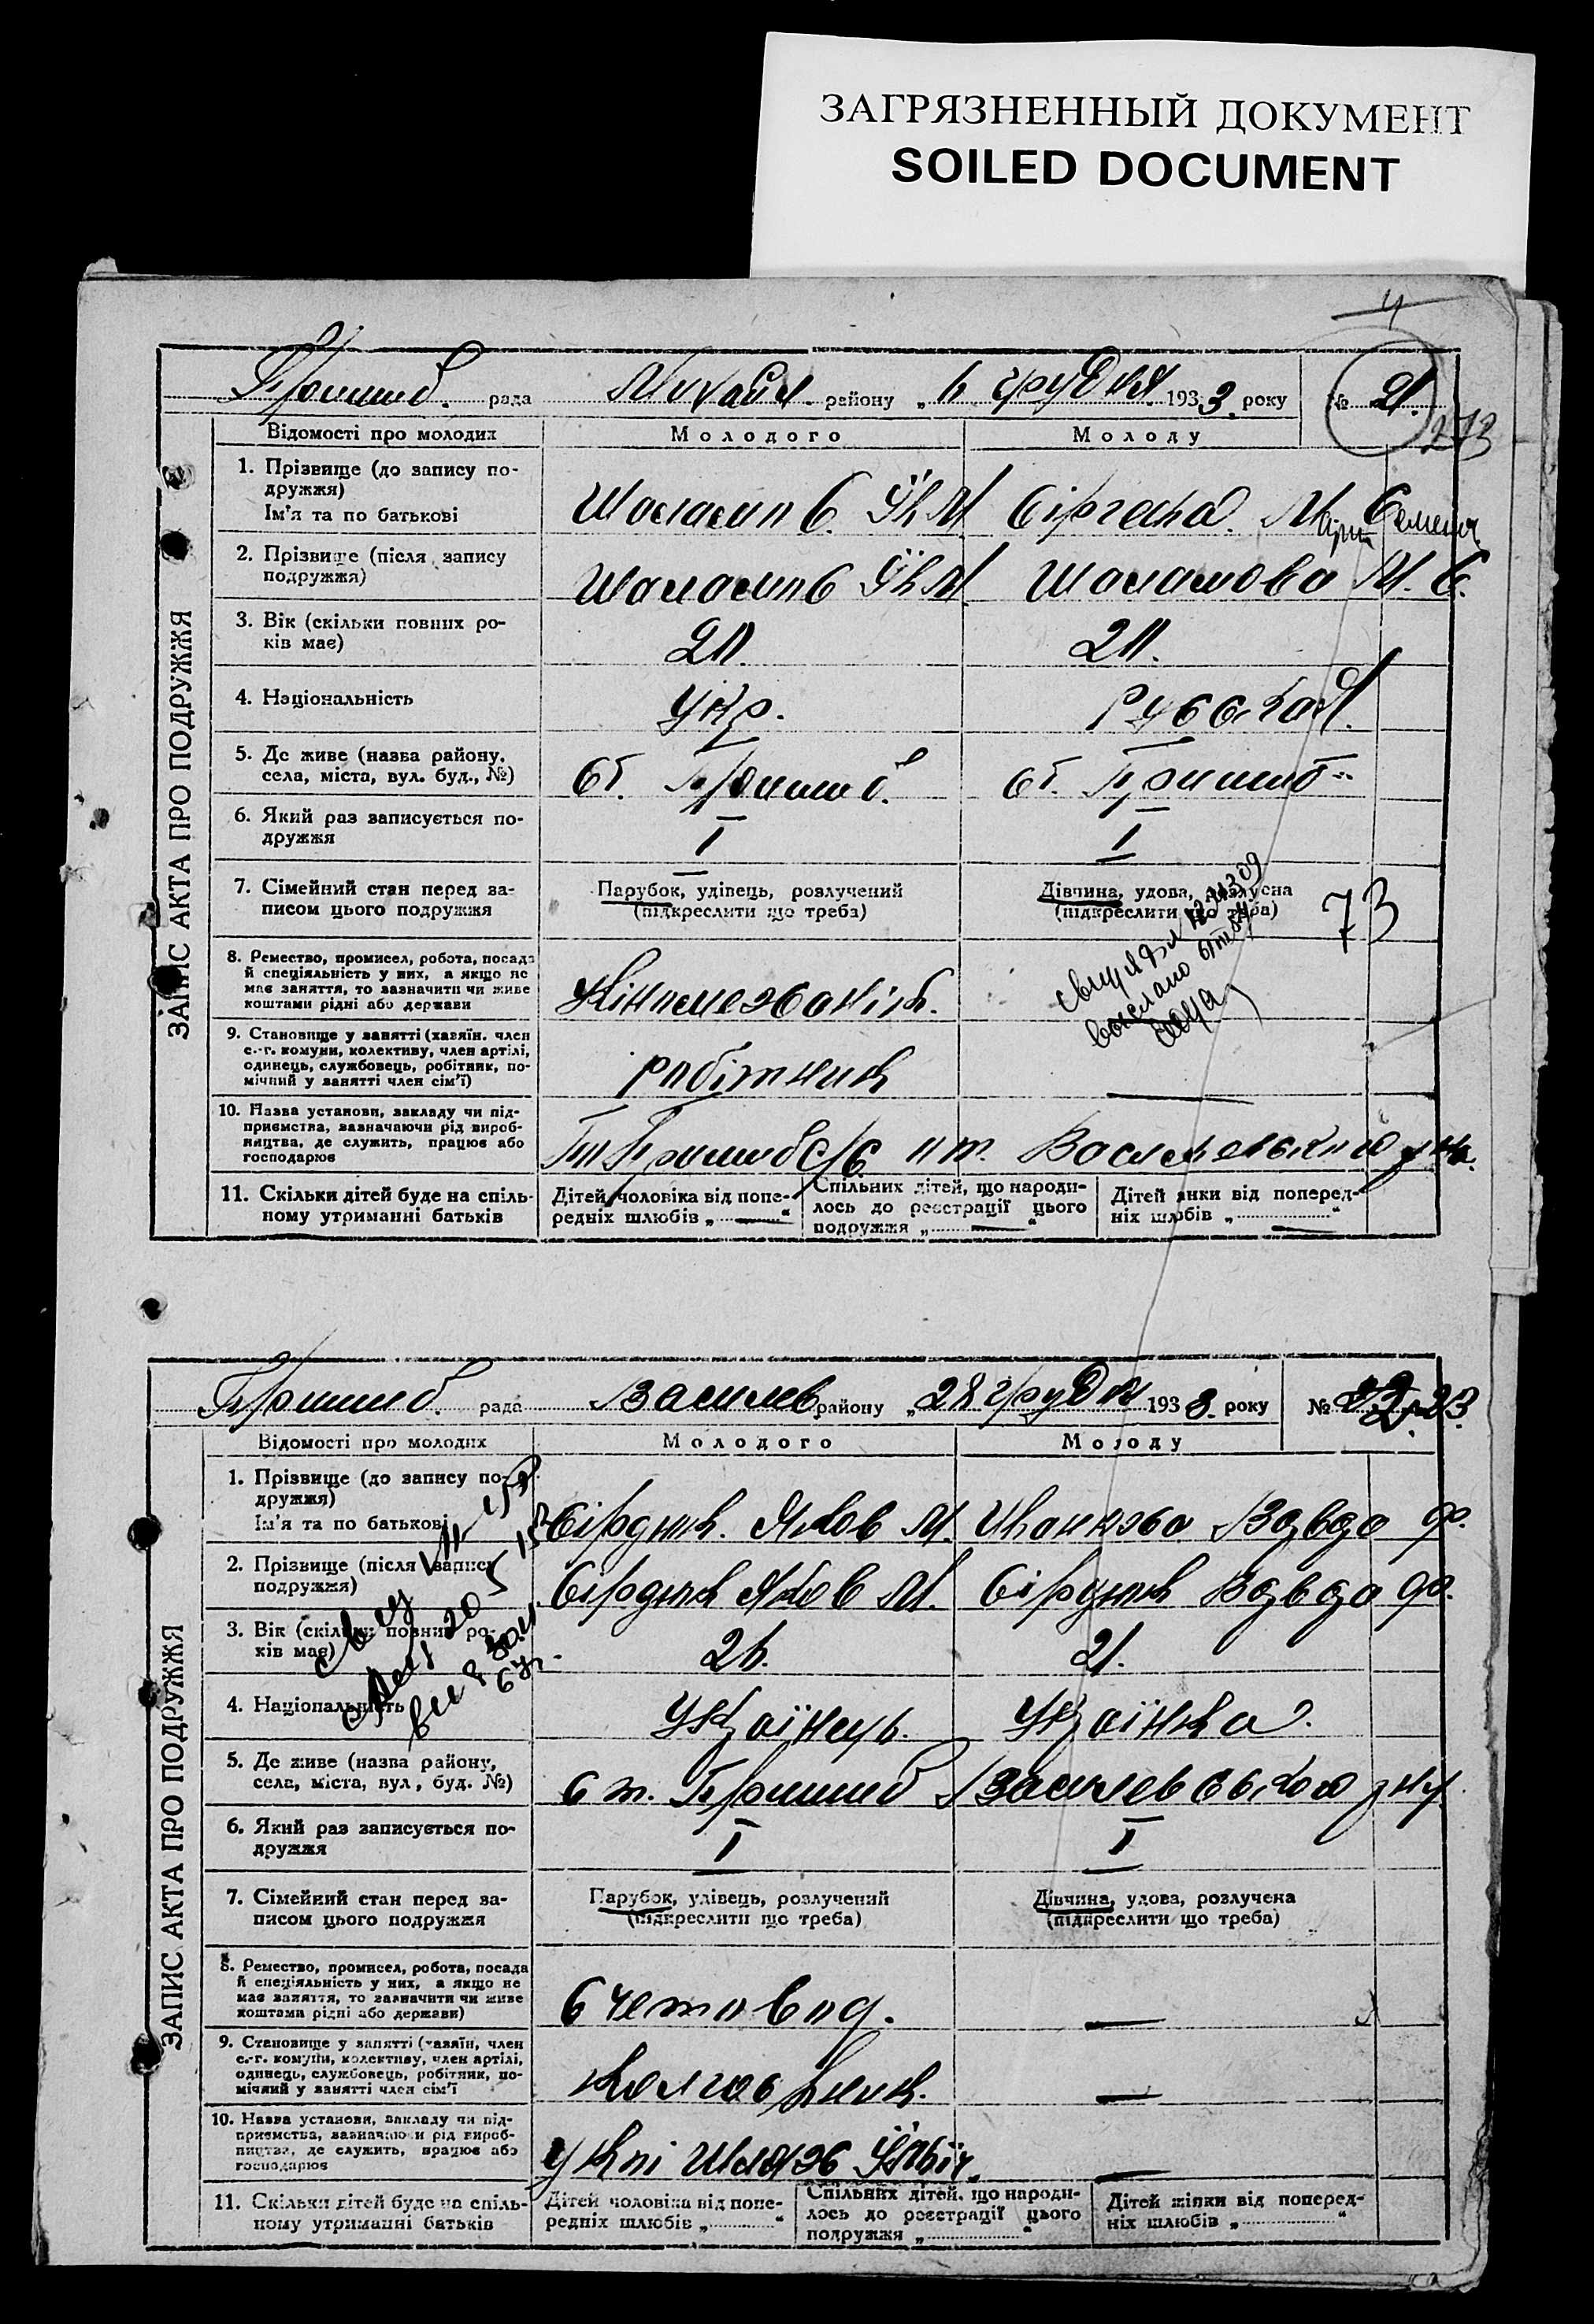 ЗАГРЯЗНЕННЫЙ ДОКУМЕНТ
SOILED DOCUMENT
4
Пришиб. рада Михайл. району „6 грудня 1933. року № 21.
273
Відомості про молодих Молодого Молоду
ЗАПИС АКТА ПРО ПОДРУЖЖЯ
1. Прізвище (до запису по-
дружжя)
Ім'я та по батькові
Сіргеєва. Семен.
2. Прізвище (після запису
подружжя)
Шаламова М. С.
3. Вік (скільки повних ро-
ків має)
20. 20.
4. Національність Укр. Русская.
5. Де живе (назва району,
села, міста, вул. буд., №)
ст. Пришиб. ст. Пришиб
6. Який раз записується по-
дружжя
I I
7. Сімейний стан перед за-
писом цього подружжя
Парубок, удівець, розлучений
(підкреслити що треба)
Дівчина, удова, розлучена
(підкреслити що треба)
73
8. Ремество, промисел, робота, посада
й спеціяльність у них, а якщо не
має заняття, то зазначити чи живе
коштами рідні або держави
Кіномеханік.
выслано
9. Становище у занятті (хазяїн. член
с.-г. комуни, колективу, член артілі,
одинець, службовець, робітник, по-
мічний у занятті член сім'ї)
робітник
10. Назва установи, закладу чи під-
приємства, зазначаючи рід вироб-
ництва, де служить, працює або
господарює
Пришиб с/с ст. Васильевського р-на.
11. Скільки дітей буде на спіль-
ному утриманні батьків
Дітей чоловіка від попе-
редніх шлюбів „ — “
Спільних дітей, що народи-
лось до реєстрації цього
подружжя „ — “
Дітей жінки від поперед-
ніх шлюбів „ — “
Пришиб. рада Василев району „28 грудня 1933. року № 23.
Відомості про молодих Молодого Молоду
ЗАПИС АКТА ПРО ПОДРУЖЖЯ
1. Прізвище (до запису по-
дружжя)
Ім'я та по батькові
Сірдюк. Яков М. Ф.
2. Прізвище (після запису
подружжя)
Сірдюк Яков М. Сірдюк Ф.
3. Вік (скільки повних ро-
ків має)
26. 21.
4. Національність Українець. Українка.
5. Де живе (назва району,
села, міста, вул, буд. №)
ст. Пришиб Василевського р-ну
6. Який раз записується по-
дружжя
I I
7. Сімейний стан перед за-
писом цього подружжя
Парубок, удівець, розлучений
(підкреслити що треба)
Дівчина, удова, розлучена
(підкреслити що треба)
8. Ремество, промисел, робота, посада
й спеціяльність у них, а якщо не
має заняття, то зазначити чи живе
коштами рідні або держави)
счетовод. —
9. Становище у занятті (хазяїн, член
с.-г. комуни, колективу, член артілі,
одинець, службовець, робітник, по-
мічний у занятті член сім'ї
колгоспник. —
10. Назва установи, закладу чи під-
приємства, зазначаючи рід вироб-
ництва, де служить, працює або
господарює
у к-пі Шлях Ілліч. —
11. Скільки дітей буде на спіль-
ному утриманні батьків
Дітей чоловіка від попе-
редніх шлюбів „ “
Спільних дітей, що народи-
лось до реєстрації цього
подружжя „ “
Дітей жінки від поперед-
ніх шлюбів „ “